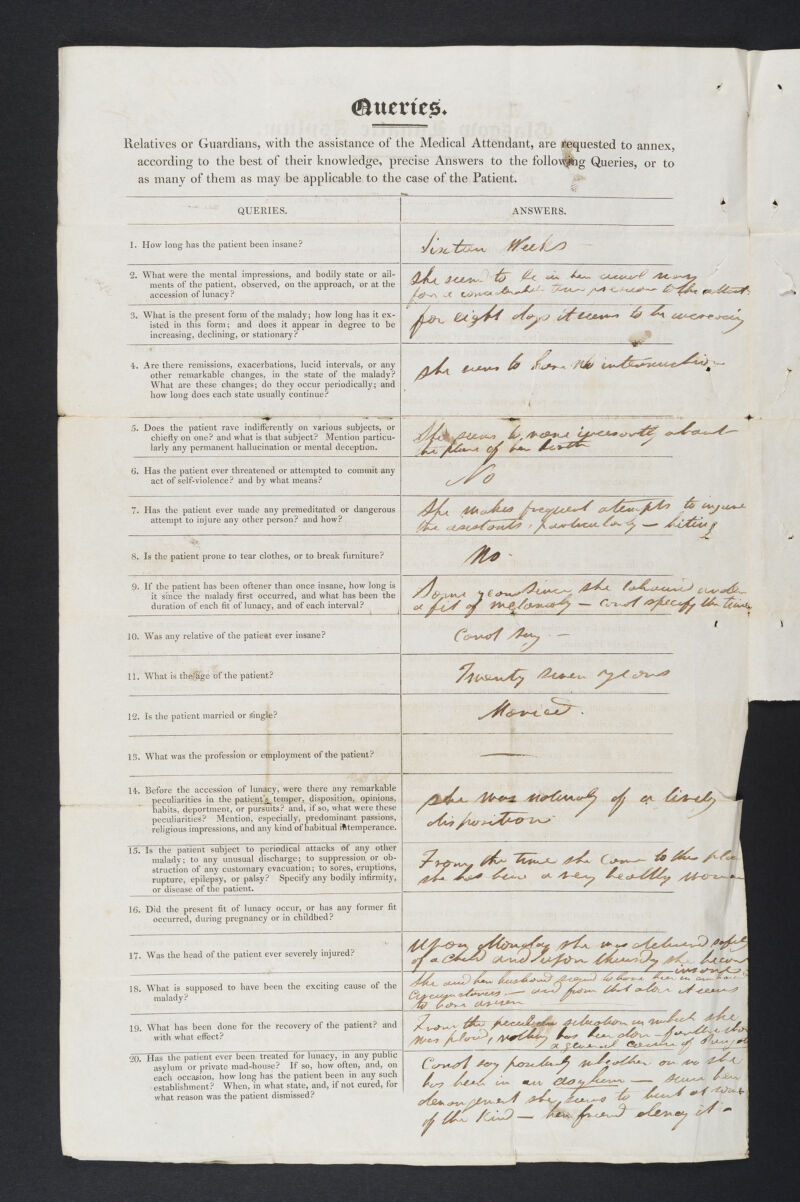 Queries.
Relatives or Guardians, with the assistance of the Medical Attendant, are requested to annex,
according to the best of their knowledge, precise Answers to the following Queries, or to
as many of them as may be applicable to the case of the Patient.
QUERIES.
ANSWERS.
1. How long has the patient been insane?
Sixteen Weeks
2. What were the mental impressions, and bodily state or ail-
ments of the patient, observed, on the approach, or at the
accession of lunacy?
She seems to be in her usual way
for a considerable time previous to the attack
3. What is the present form of the malady; how long has it ex-
isted in this form; and does it appear in degree to be
increasing, declining, or stationary?
for eight days it seems to be increasing
4. Are there remissions, exacerbations, lucid intervals, or any
other remarkable changes, in the state of the malady?
What are these changes; do they occur periodically; and
how long does each state usually continue?
she seems to have no
5. Does the patient rave indifferently on various subjects, or
chiefly on one? and what is that subject? Mention particu-
larly any permanent hallucination or mental deception.
She seems to rave about
the place of her birth
6. Has the patient ever threatened or attempted to commit any
act of self-violence? and by what means?
No
7. Has the patient ever made any premeditated or dangerous
attempt to injure any other person? and how?
She makes frequent atempts to injure
the asistants, particularly — biting
8. Is the patient prone to tear clothes, or to break furniture?
No -
9. If the patient has been oftener than once insane, how long is
it since the malady first occurred, and what has been the
duration of each fit of lunacy, and of each interval?
Some years since she laboured under
a fit of melancoly — canot specify the time
10. Was any relative of the patient ever insane?
Canot say —
11. What is the age of the patient?
Twenty seven years
12. Is the patient married or single?
Maried.
13. What was the profession or employment of the patient?
—
14. Before the accession of lunacy, were there any remarkable
peculiarities in the patient's temper, disposition, opinions,
habits, deportment, or pursuits? and, if so, what were these
peculiarities? Mention, especially, predominant passions,
religious impressions, and any kind of habitual intemperance.
she was naturaly of a lively
disposition
15. Is the patient subject to periodical attacks of any other
malady; to any unusual discharge; to suppression or ob-
struction of any customary evacuation; to sores, eruptions,
rupture, epilepsy, or palsy? Specify any bodily infirmity,
or disease of the patient.
From the time she came to this place
she has been a very healthy woman
16. Did the present fit of lunacy occur, or has any former fit
occurred, during pregnancy or in childbed?
17. Was the head of the patient ever severely injured?
Upon Monday she was delivered safely
of a child and upon thursday she became
insane
18. What is supposed to have been the exciting cause of the
malady?
She and her husband to have been in
circumstances — and from that alone it seems
to have arisen
19. What has been done for the recovery of the patient? and
with what effect?
From the peculiar situation in which she
was placed, nothing has been done — farther than
a general course of
20. Has the patient ever been treated for lunacy, in any public
asylum or private mad-house? If so, how often, and, on
each occasion, how long has the patient been in any such
establishment? When, in what state, and, if not cured, for
what reason was the patient dismissed?
Canot say positively whether or no she
has been in an asylum — since her
derangement she seems to hint at some
of the kind — her friend deney it -